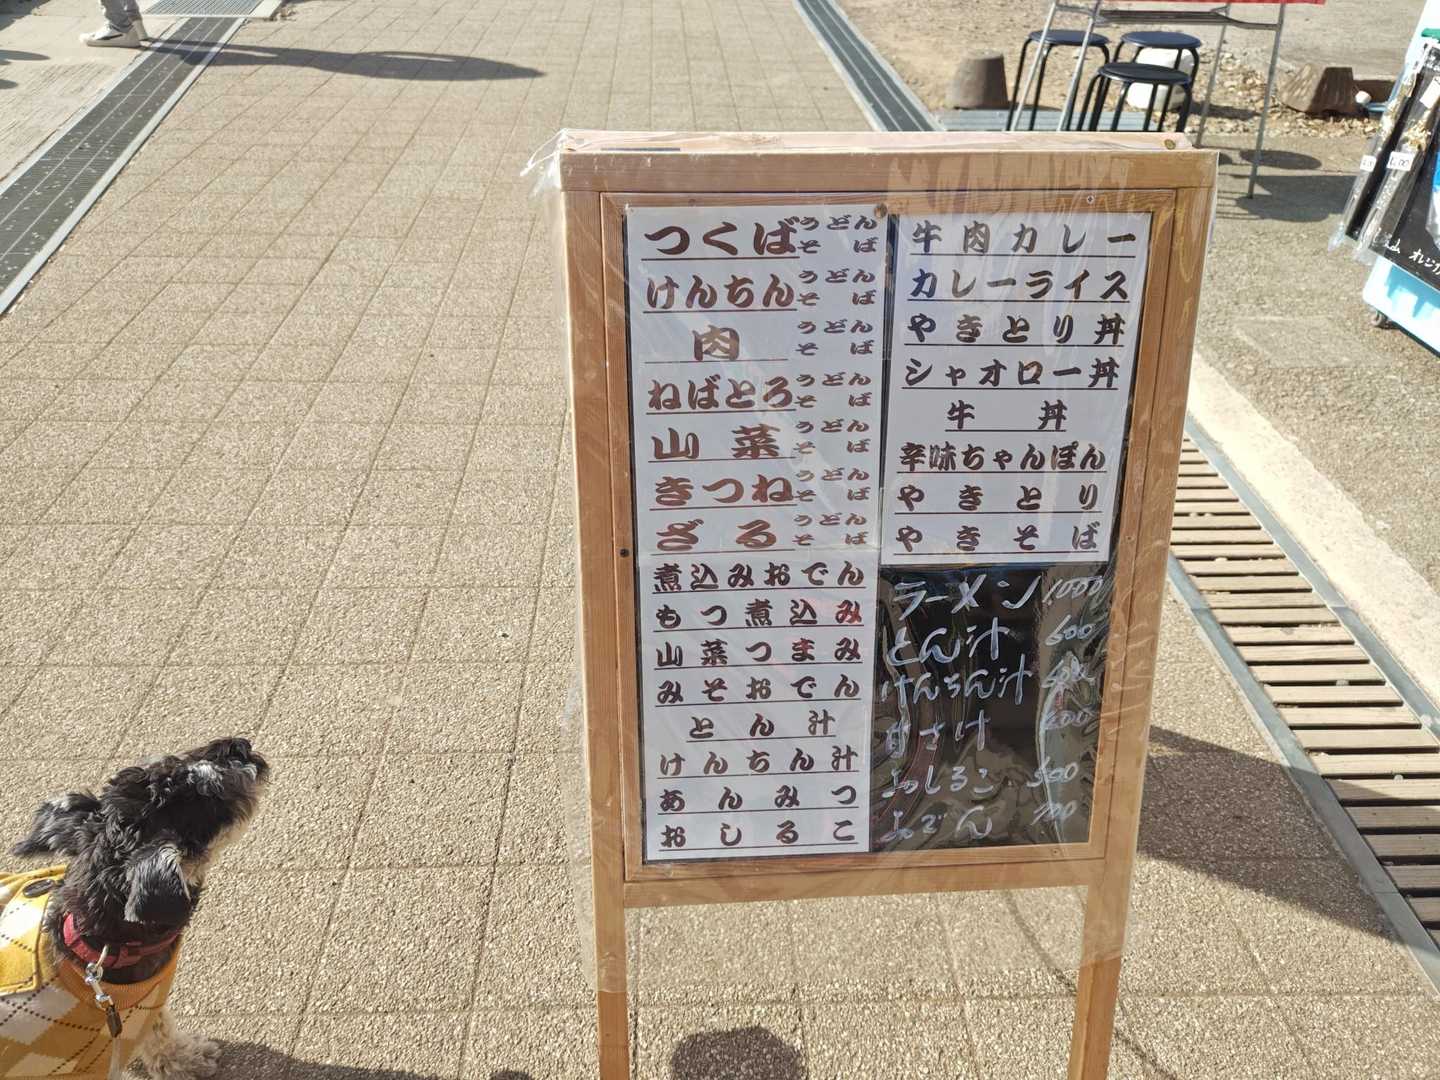 つくば うどん そば
けんちん うどん そば
肉 うどん そば
ねばとろ うどん そば
山菜 うどん そば
きつね うどん そば
ざる うどん そば
煮込みおでん
もつ煮込み
山菜つまみ
みそおでん
とん汁
けんちん汁
あんみつ
おしるこ
牛肉カレー
カレーライス
やきとり丼
シャオロー丼
牛丼
辛味ちゃんぽん
やきとり
やきそば
ラーメン 1000
とん汁 600
けんちん汁
甘さけ 600
おしるこ 500
おでん 700